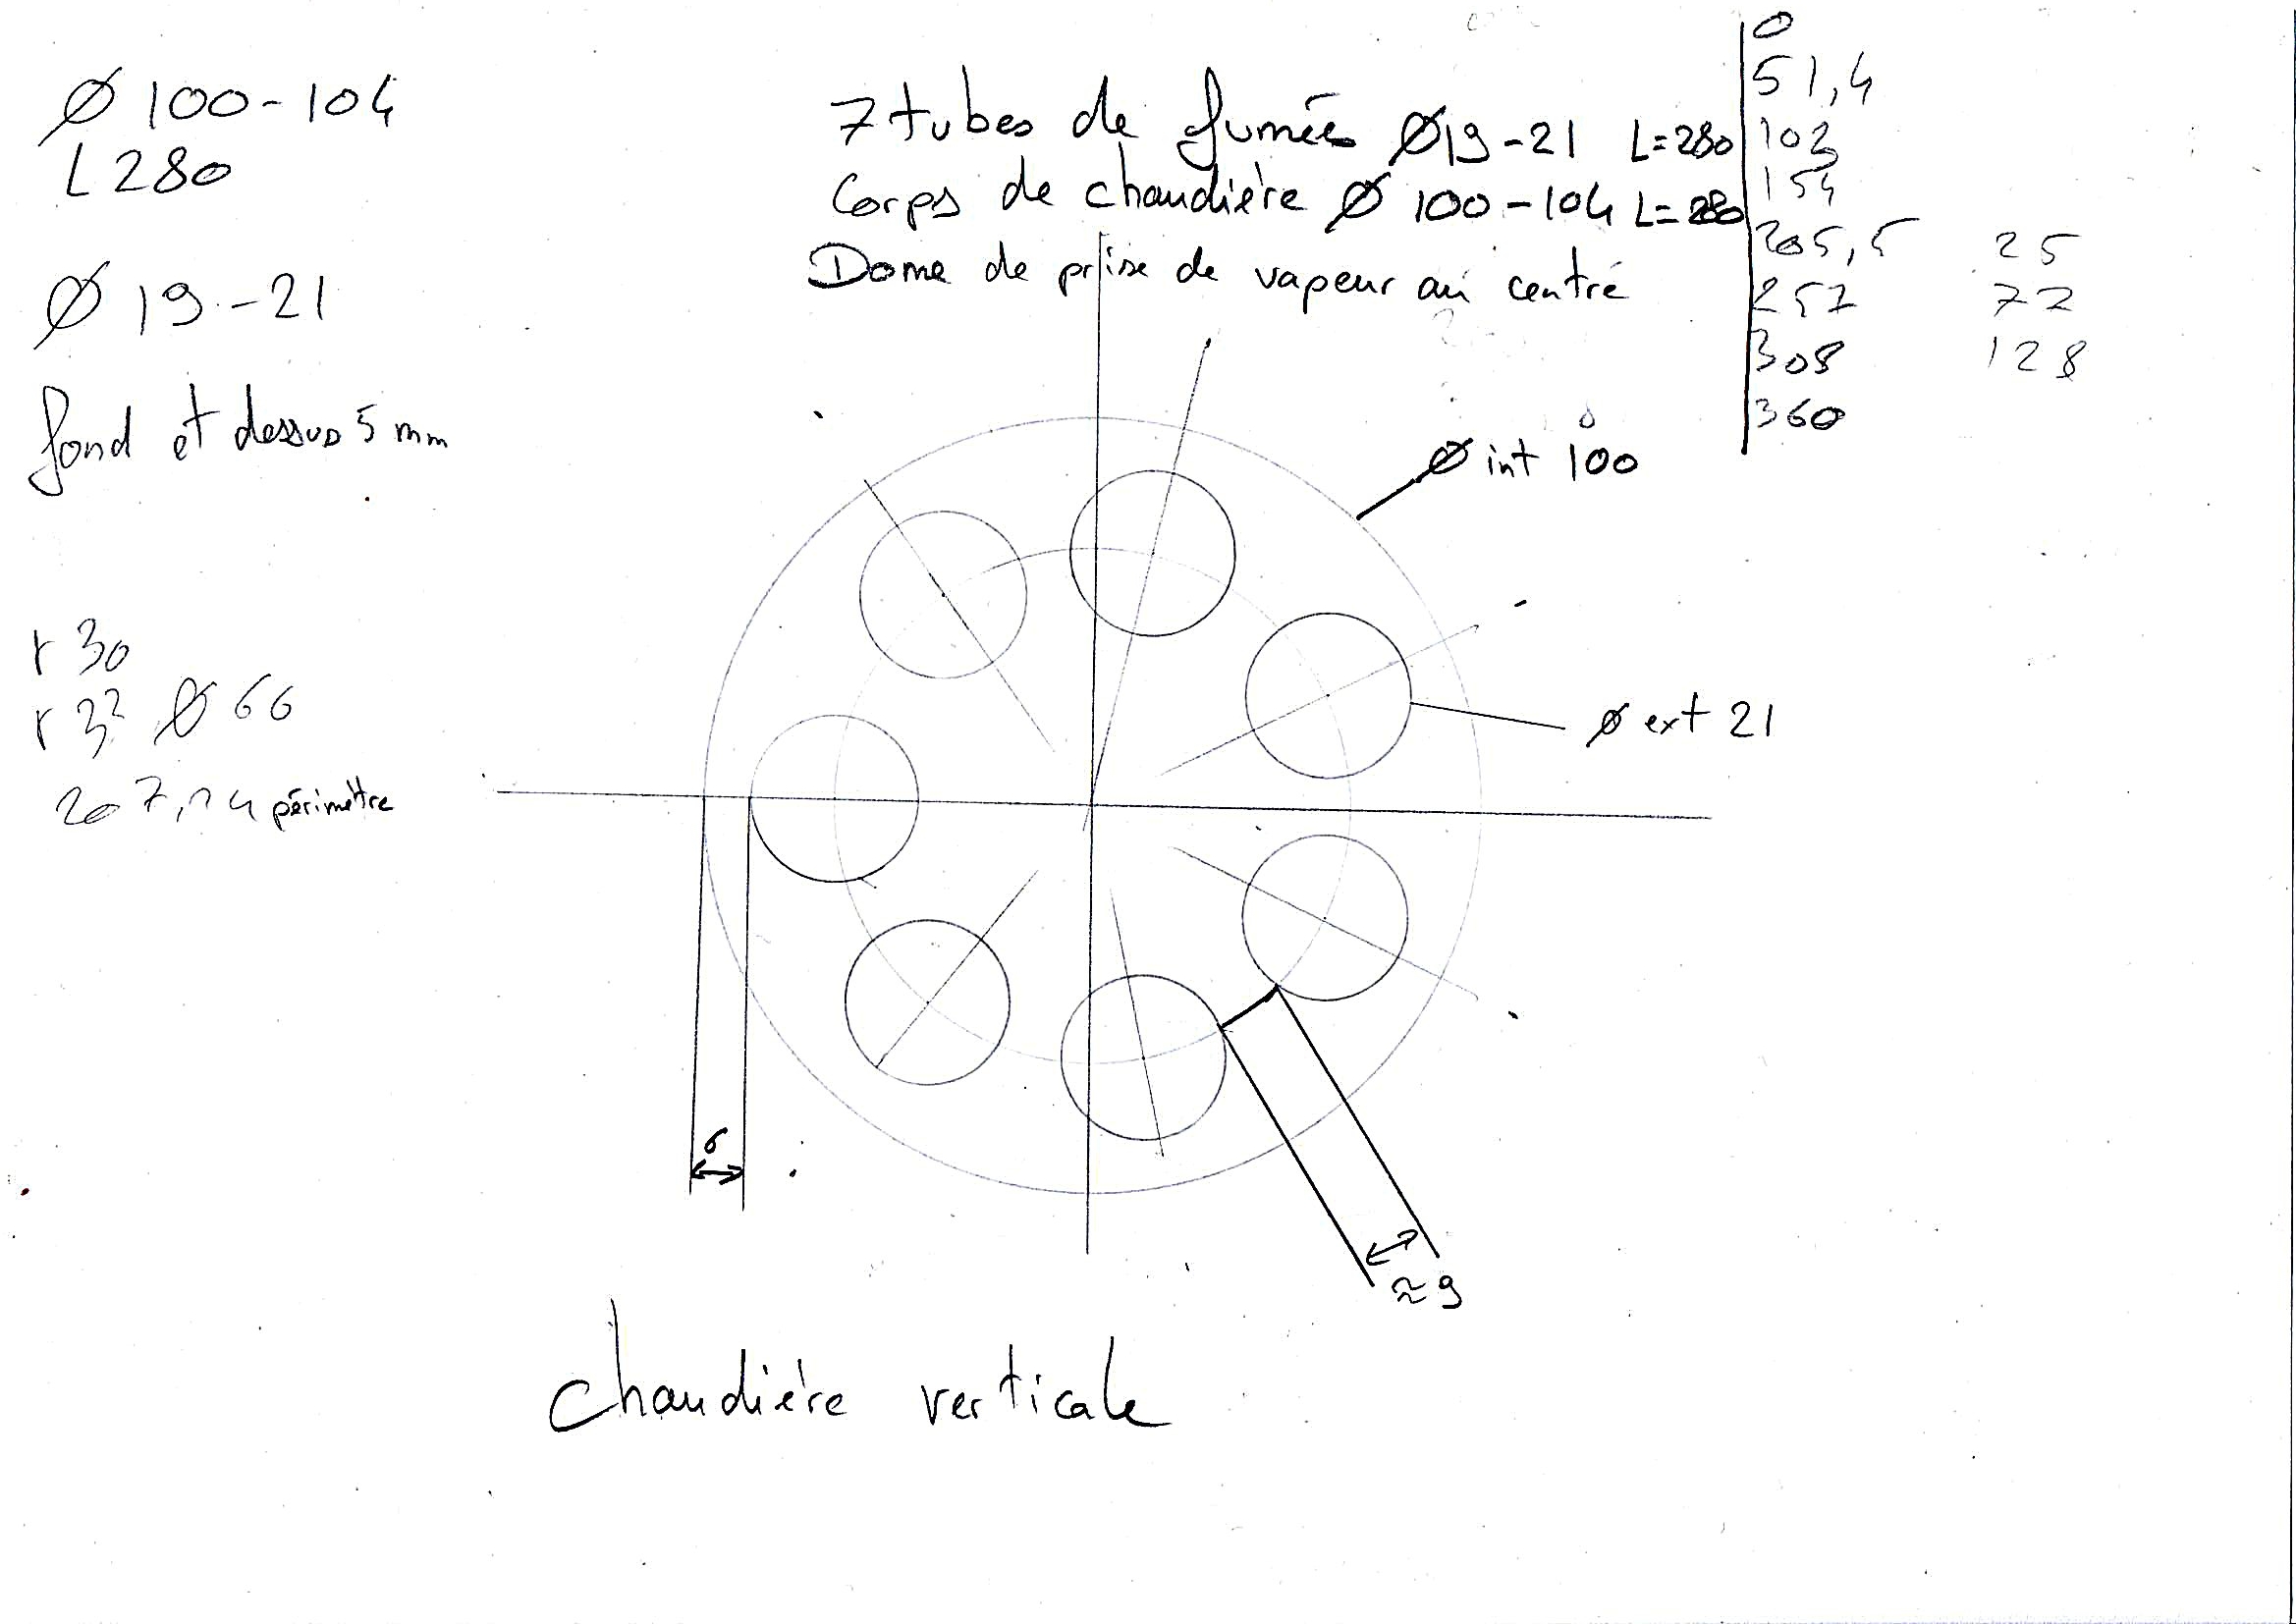 Ø 100-104
L 280
Ø 19-21
fond et dessus 5 mm
r 30
r 33 Ø 66
207,24 périmètre
7 tubes de fumée Ø19-21 L=280
Corps de chaudière Ø 100-104 L=280
Dome de prise de vapeur au centre
0
51,4
103
154
205,5 25
257 77
308 128
360
Ø int 100
Ø ext 21
6
≈9
chaudière verticale